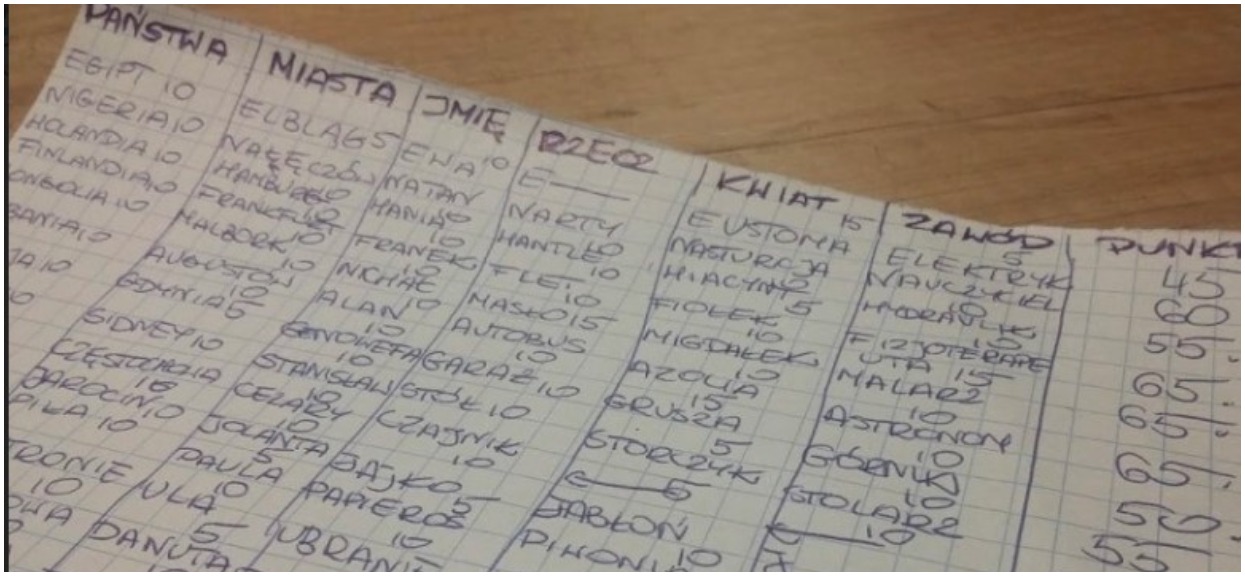 PAŃSTWA MIASTA JMIĘ RZECZ KWIAT ZAWÓD PUNKT
EGIPT 10 ELBLĄG 5 EWA 10 E— EUSTOMA 15 ELEKTRYK 5 45
NIGERIA 10 NAŁĘCZÓW NATAN NARTY NASTURCJA NAUCZYCIEL 60
HOLANDIA 10 HAMBURG 10 HANIA 10 HANTLE 10 HIACYNT HYDRAULIK 10 55.
FINLANDIA 10 FRANKFURT 10 FRANEK 10 FLET 10 FIOŁEK 5 FIZJOTERAPEUTA 15 65.
ONGOLIA 10 MALBORK 10 MICHAŁ 10 MASŁO 15 MIGDAŁEK 10 MALARZ 65.
BANIA 10 AUGUSTÓW 10 ALAN 10 AUTOBUS 10 AZOLIA 10 ASTRONOM 10 65.
JA 10 GDYNIA 5 GENOWEFA 10 GARAŻ 10 GRUSZA 15 GÓRNIK 10 50.
SIDNEY 10 STANISŁAW 10 STÓŁ 10 STORCZYK 5 STOLARZ 10 55
CZĘSTOCHOWA 10 CEZARY 10 CZAJNIK 10 C— C— 10
JAROCIN 10 JOLANTA 5 JAJKO 5 JABŁOŃ 10 J
PIŁA 10 PAULA 10 PAPIEROS 10 PIWONIA
TRONIE 10 ULA 5 UBRANIE
DANUTA